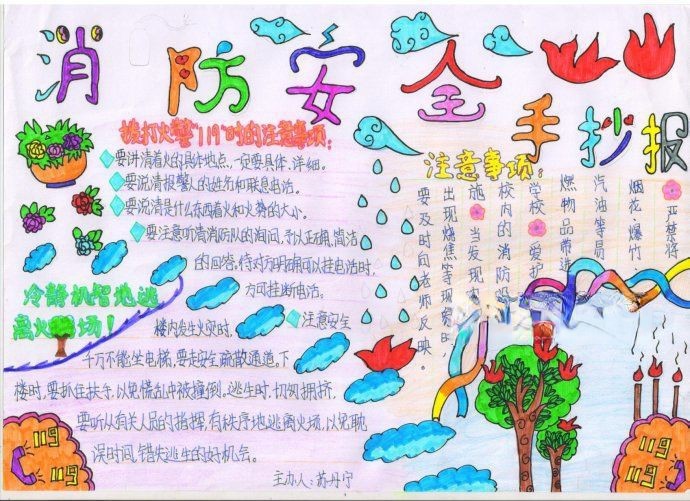 消防安全
手抄报
拨打火警"119"时的注意事项:
要讲清着火的具体地点,一定要具体、详细。
要说清报警人的姓名和联系电话。
要说清是什么东西着火和火势的大小。
要注意听清消防队的询问,予以正确,简洁
的回答,待对方明确可以挂电话时,
方可挂断电话。
冷静机智地逃
离火场!
注意安全
楼内发生火灾时,
千万不能坐电梯,要走安全疏散通道。下
楼时,要抓住扶手,以免慌乱中被撞倒。逃生时,切勿拥挤,
要听从有关人员的指挥,有秩序地逃离火场,以免耽
误时间,错失逃生的好机会。
主办人:苏丹宁
注意事项:
严禁将
烟花、爆竹
汽油等易
燃物品带进
学校 爱护
校内的消防设
施 当发现
出现烧焦等现象时,
要及时向老师反映。
119
119
119
119